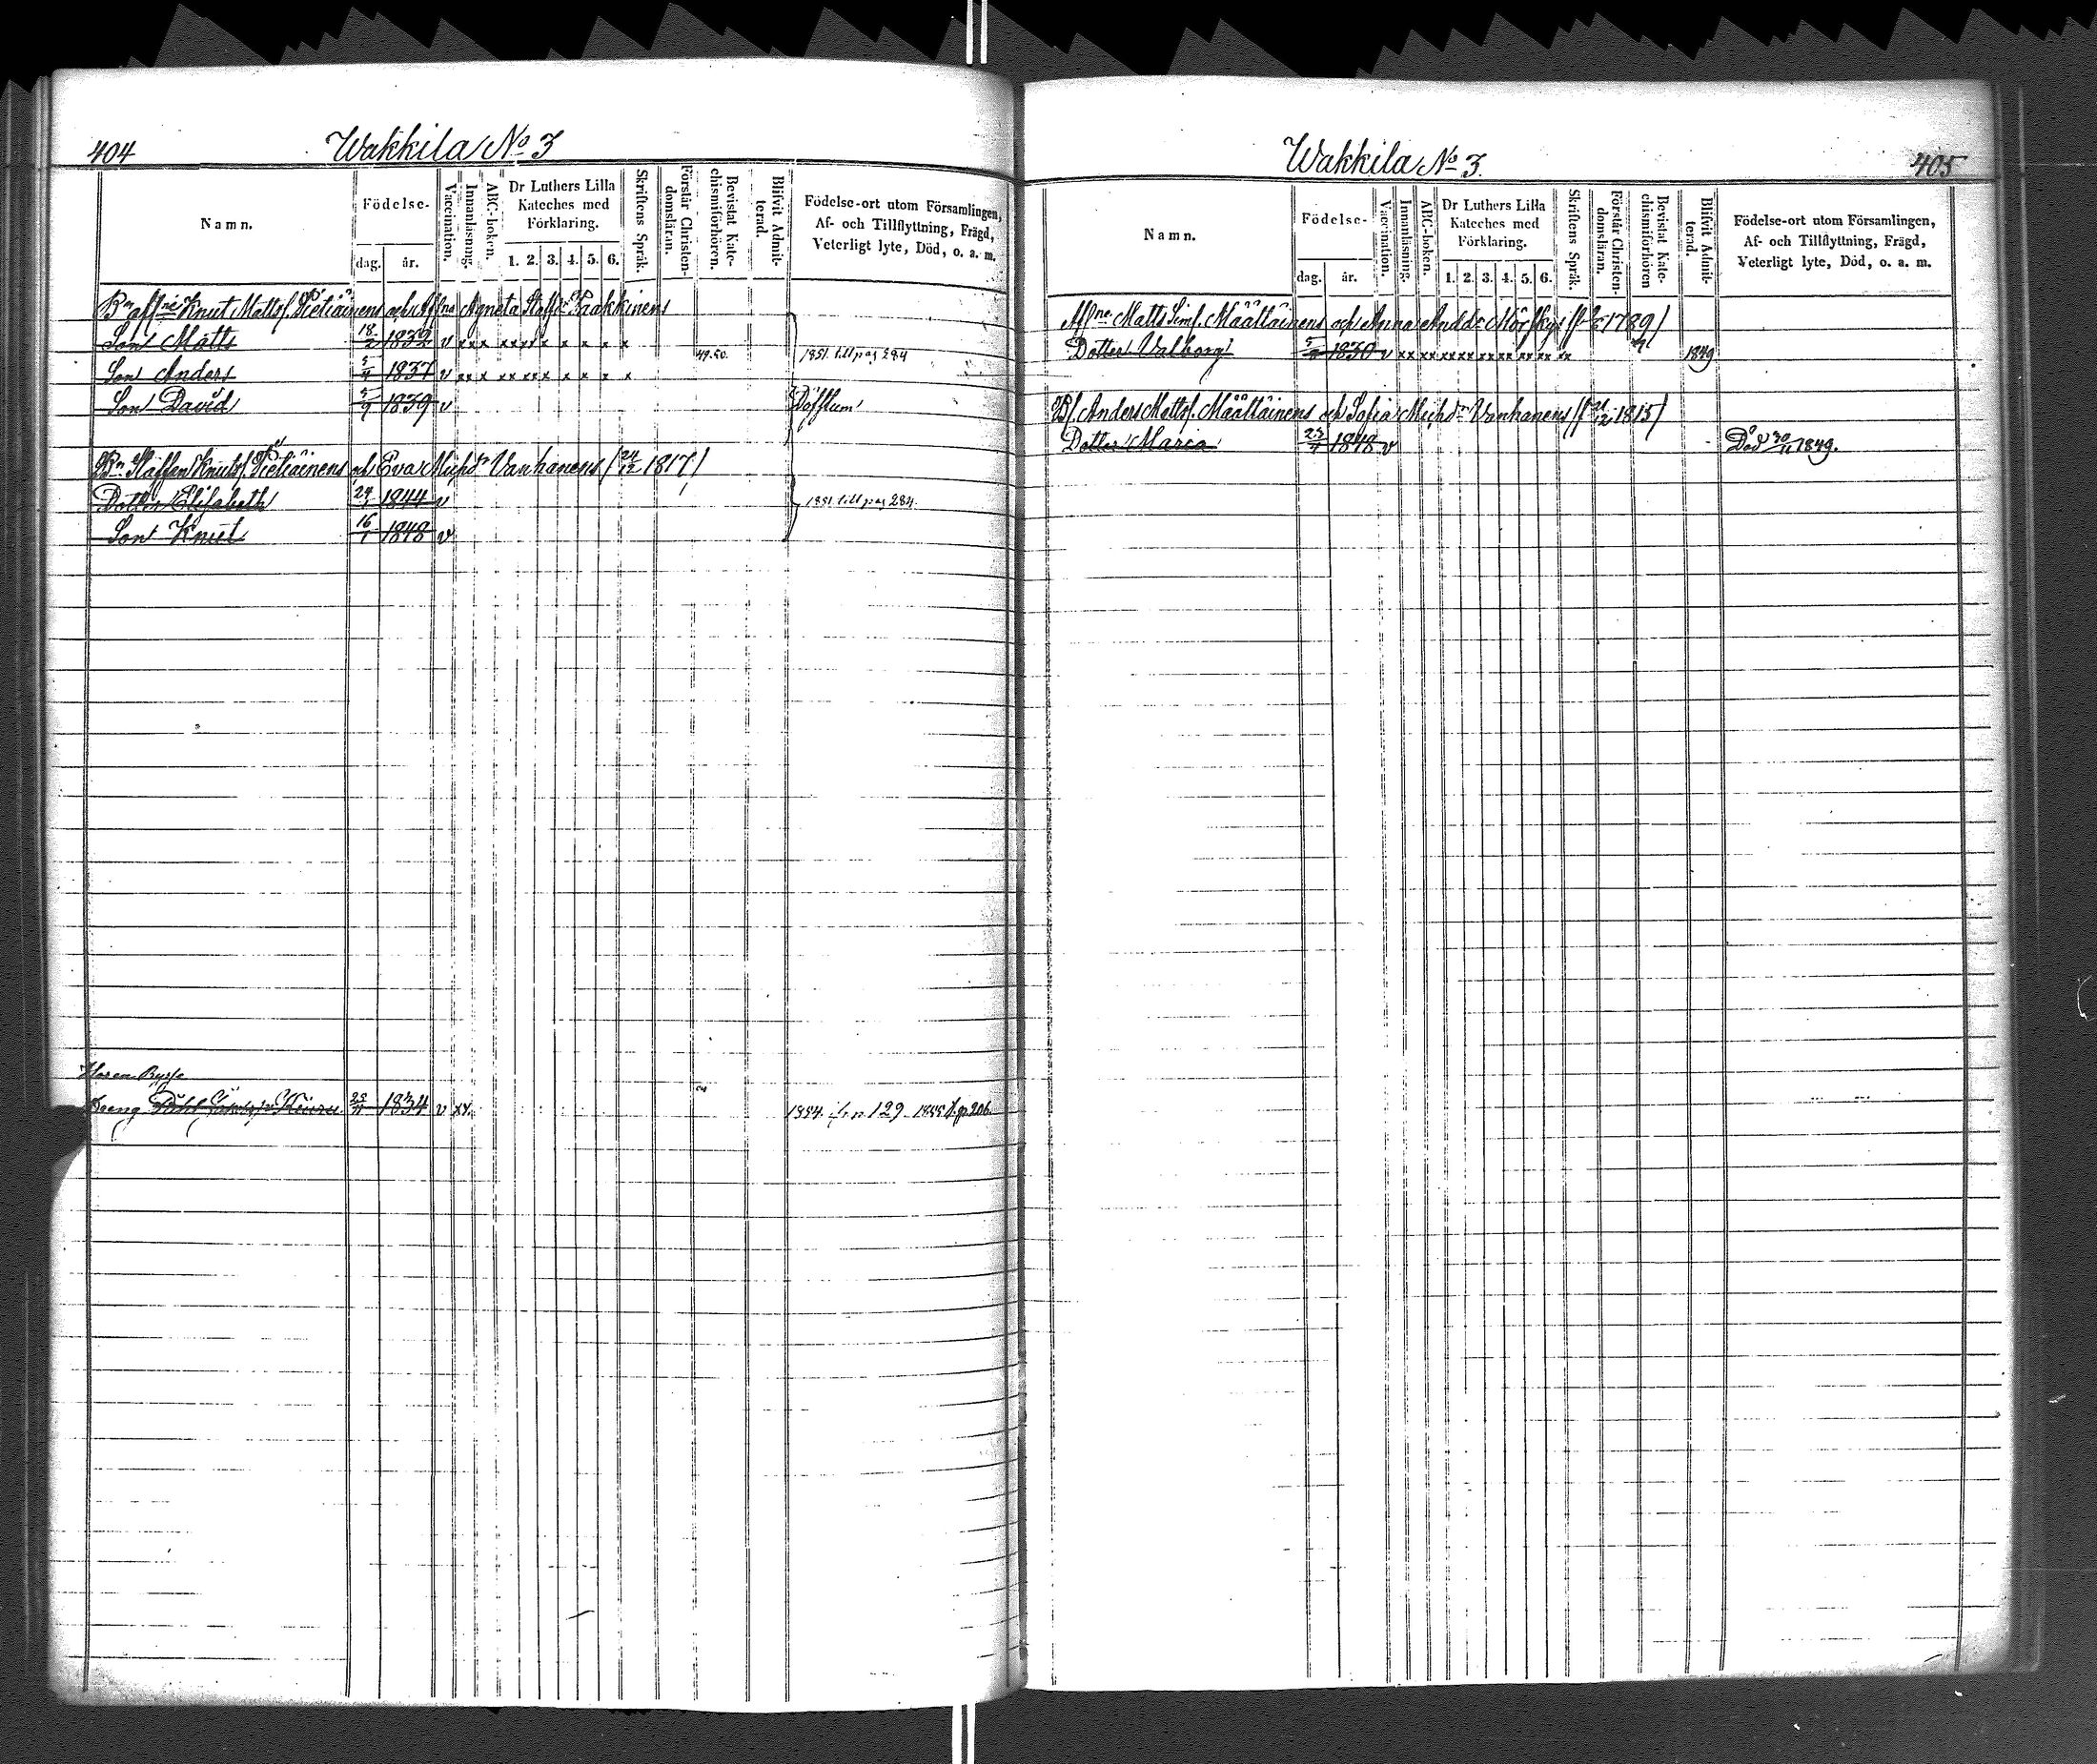 404
Wakkila No 3
Namn.
Födelse-
dag. år.
Vaccination.
Innanläsning.
ABC-boken.
Dr Luthers Lilla
Kateches med
Förklaring.
1. 2. 3. 4. 5. 6.
Skriftens Språk.
Förstår Christen-
domsläran.
Bevistat Kate-
chismiförhören.
Blifvit Admit-
terad.
Födelse-ort utom Församlingen,
Af- och Tillflyttning, Frägd,
Veterligt lyte, Död, o. a. m.
Knut Mattss. Pietiäinens och Agneta Staffd:r Paakkinens
Son Matts 18/2 1832 v xx x xx xx x x x x x
49.50. 1851 till pag 284
Son Anders 5/4 1837 v xx x xx xx x x x x x
Son David 5/9 1839 v Döfstum
Bn Staffan Knuts. Pietiäinens och Eva Michd:r Vanhanens (24/12 1817)
Dotter Elisabeth 24/1 1844 v 1851 till pag 284.
Son Knut 16/1 1848 v
Dreng 1834 v xx. 1854. fr. p. 129 1855 t. p. 206.
Wakkila No 3.
405
Namn.
Födelse-
dag. år.
Vaccination.
Innanläsning.
ABC-boken.
Dr Luthers Lilla
Kateches med
Förklaring.
1. 2. 3. 4. 5. 6.
Skriftens Språk.
Förstår Christen-
domsläran.
Bevistat Kate-
chismiförhören
Blifvit Admit-
terad.
Födelse-ort utom Församlingen,
Af- och Tillflyttning, Frägd,
Veterligt lyte, Död, o. a. m.
Matts Sims. Määttäinens och Anna Andd:r Mörskys 1789)
Dotter Valborg 1830 v xx xx xx xx xx xx xx xx xx 1849
Anders Mattss. Määttäinens och Sofia Michd:r Vanhanens 1815)
Dotter Maria 1848 v Död 30/11 1849.